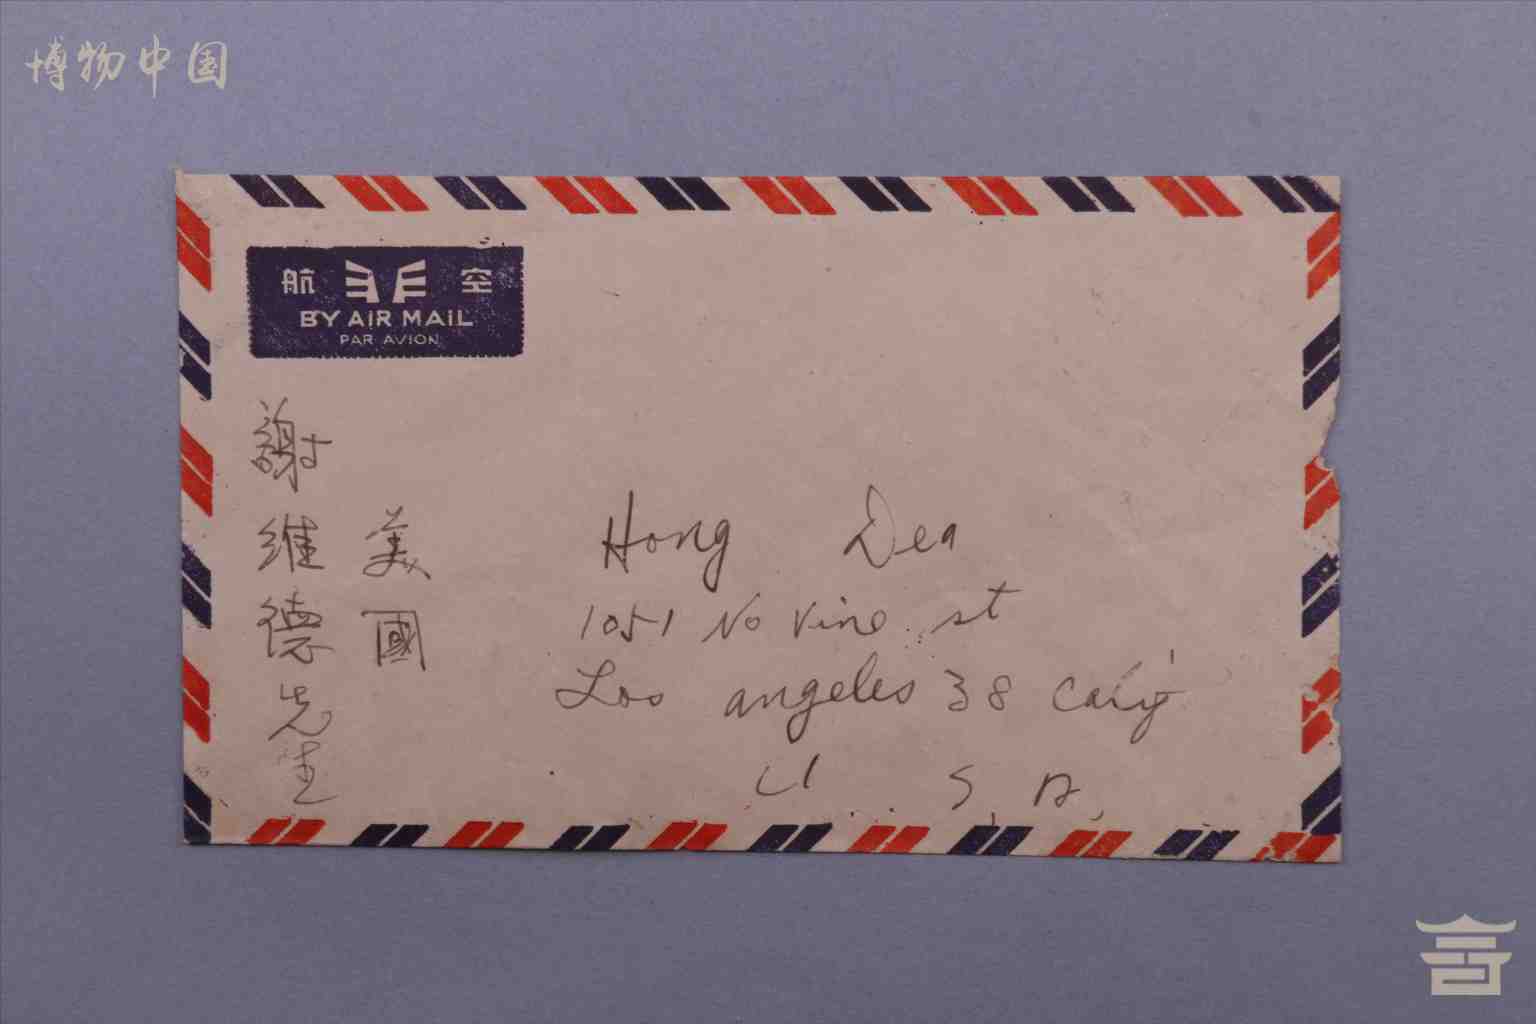 博物中国
航 空
BY AIR MAIL
PAR AVION
謝維德先生
美國
Hong Dea
1051 No Vine st
Los angeles 38 Calif
U.S.A.